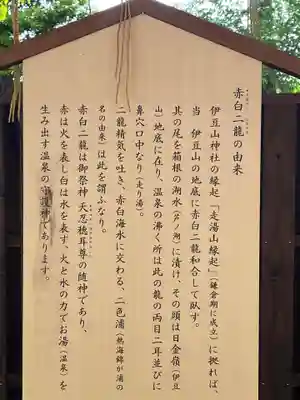 赤白二龍の由来
伊豆山神社の縁起「走湯山縁起」(鎌倉期に成立)に拠れば、
当　伊豆山の地底に赤白二龍和合して臥す。
其の尾を箱根の湖水(芦ノ湖)に漬け、その頭は日金嶺(伊豆
山)地底に在り、温泉の沸く所は此の龍の両目二耳並びに
鼻穴口中なり(走り湯)。
二龍精気を吐き、赤白海水に交わる、二色浦(熱海錦が浦の
名の由来)は此を謂ふなり。
赤白二龍は御祭神 天忍穂耳尊の随神であり、
赤は火を表し白は水を表す、火と水の力でお湯(温泉)を
生み出す温泉の守護神であります。